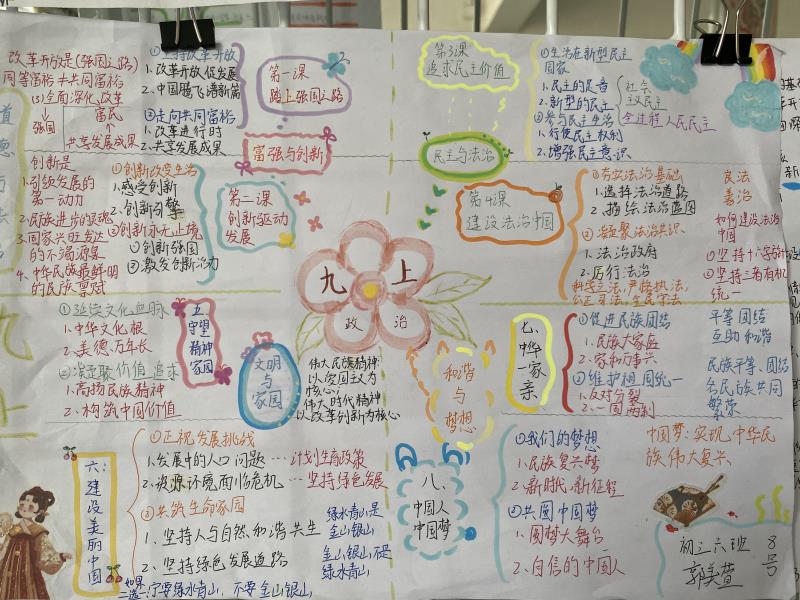 改革开放是(强国之路)
同等富裕≠共同富裕
(3)全面深化改革
强国
富民
共享发展成果
①坚持改革开放
1.改革开放促发展
2.中国腾飞谱新篇
②走向共同富裕
1.改革进行时
2.共享发展成果
第一课
踏上强国之路
富强与创新
创新是
1.引领发展的
第一动力
2.民族进步的灵魂
3.国家兴旺发达
的不竭源泉
4.中华民族最鲜明
的民族禀赋
①创新改变生活
1.感受创新
2.创新引擎
②创新永无止境
①创新强国
②激发创新活力
第二课
创新驱动
发展
第3课
追求民主价值
①生活在新型民主
国家
1.民主的足音
2.新型的民主
社会
主义民主
②参与民主生活
全过程人民民主
1.行使民主权利
2.增强民主意识
民主与法治
第4课
建设法治中国
①夯实法治基础
1.选择法治道路
2.描绘法治蓝图
②凝聚法治共识
1.法治政府
2.厉行法治
科学立法,严格执法,
公正司法,全民守法
良法
善治
如何建设法治
中国
①坚持十六字方针
②坚持三者有机
统一
九上
政治
①延续文化血脉
1.中华文化根
2.美德万年长
②凝聚价值追求
1.高扬民族精神
2.构筑中国价值
五、
守望
精神
家园
文明
与
家园
伟大民族精神:
以爱国主义为
核心;
伟大时代精神:
以改革创新为核心
和谐
与
梦想
七、中华
一家
亲
①促进民族团结
1.民族大家庭
2.家和万事兴
②维护祖国统一
1.反对分裂
2.一国两制
平等团结
互助和谐
民族平等、团结
各民族共同
繁荣
六:
建设美丽中国
①正视发展挑战
1.发展中的人口问题…计划生育政策
2.资源环境面临危机…坚持绿色发展
②共筑生命家园
1.坚持人与自然和谐共生
2.坚持绿色发展道路
绿水青山是
金山银山
金山银山不是
绿水青山
如果
二选一:宁要绿水青山,不要金山银山
八、
中国人
中国梦
①我们的梦想
1.民族复兴梦
2.新时代新征程
②共圆中国梦
1.圆梦大舞台
2.自信的中国人
中国梦:实现中华民
族伟大复兴
初三六班
8号
郭美萱